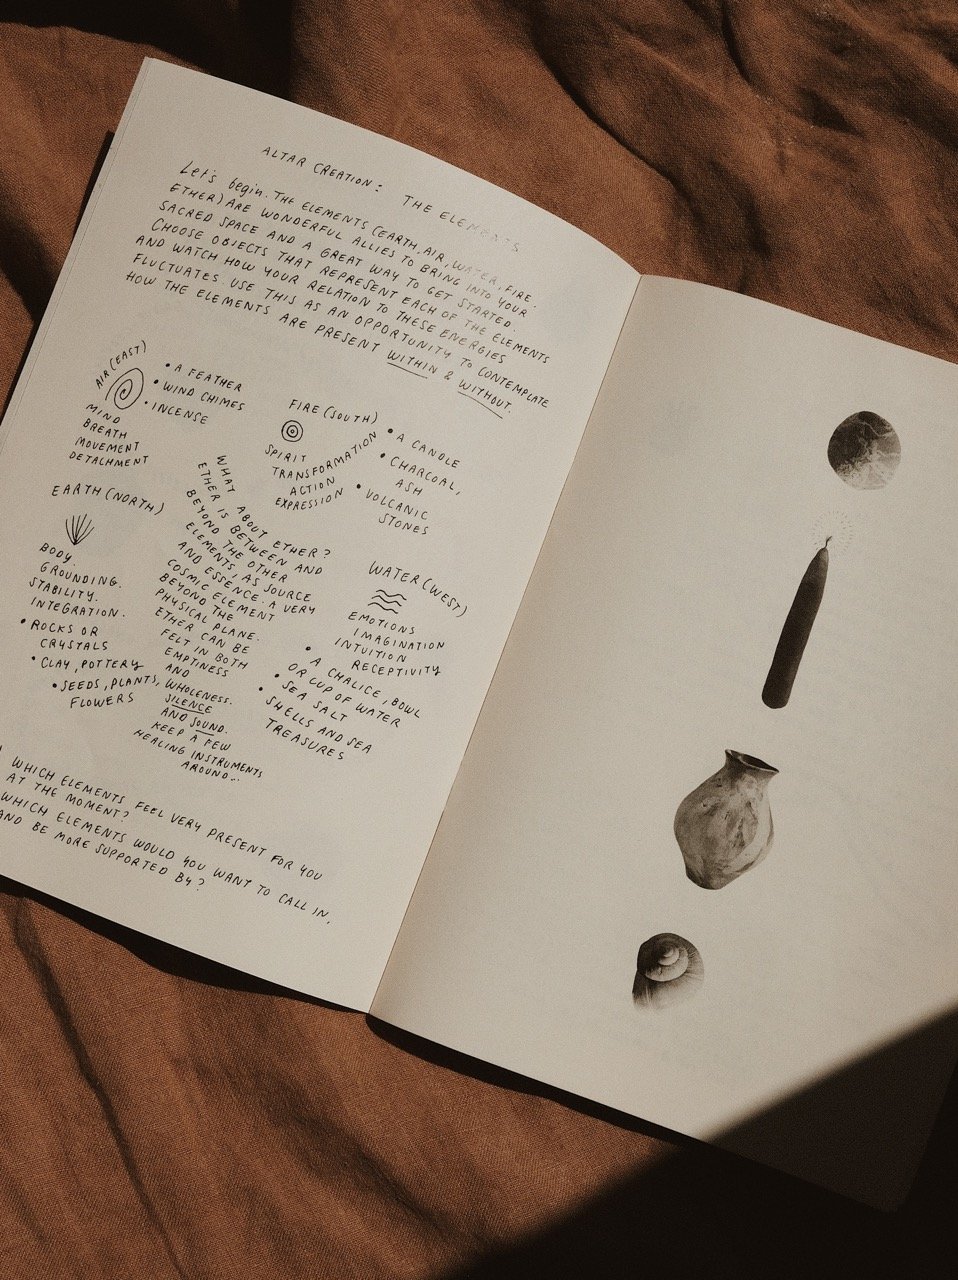 ALTAR CREATION: THE ELEMENTS
Let's begin. THE ELEMENTS (EARTH, AIR, WATER, FIRE.
ETHER) ARE WONDERFUL ALLIES TO BRING INTO YOUR
SACRED SPACE AND A GREAT WAY TO GET STARTED.
CHOOSE OBJECTS THAT REPRESENT EACH OF THE ELEMENTS
AND WATCH HOW YOUR RELATION TO THESE ENERGIES
FLUCTUATES. USE THIS AS AN OPPORTUNITY TO CONTEMPLATE
HOW THE ELEMENTS ARE PRESENT WITHIN & WITHOUT.
AIR (EAST)
• A FEATHER
• WIND CHIMES
• INCENSE
MIND
BREATH
MOVEMENT
DETACHMENT
FIRE (SOUTH)
SPIRIT
TRANSFORMATION
ACTION
EXPRESSION
• A CANDLE
• CHARCOAL,
ASH
• VOLCANIC
STONES
EARTH (NORTH)
BODY.
GROUNDING.
STABILITY.
INTEGRATION.
• ROCKS OR
CRYSTALS
• CLAY, POTTERY
• SEEDS, PLANTS,
FLOWERS
WHAT ABOUT ETHER?
ETHER IS BETWEEN AND
BEYOND THE OTHER
ELEMENTS, AS SOURCE
AND ESSENCE. A VERY
COSMIC ELEMENT
BEYOND THE
PHYSICAL PLANE.
ETHER CAN BE
FELT IN BOTH
EMPTINESS
AND
WHOLENESS.
SILENCE
AND SOUND.
KEEP A FEW
HEALING INSTRUMENTS
AROUND..
WATER (WEST)
EMOTIONS
IMAGINATION
INTUITION
RECEPTIVITY
• A CHALICE, BOWL
OR CUP OF WATER
• SEA SALT
• SHELLS AND SEA
TREASURES
WHICH ELEMENTS FEEL VERY PRESENT FOR YOU
AT THE MOMENT?
WHICH ELEMENTS WOULD YOU WANT TO CALL IN,
AND BE MORE SUPPORTED BY?